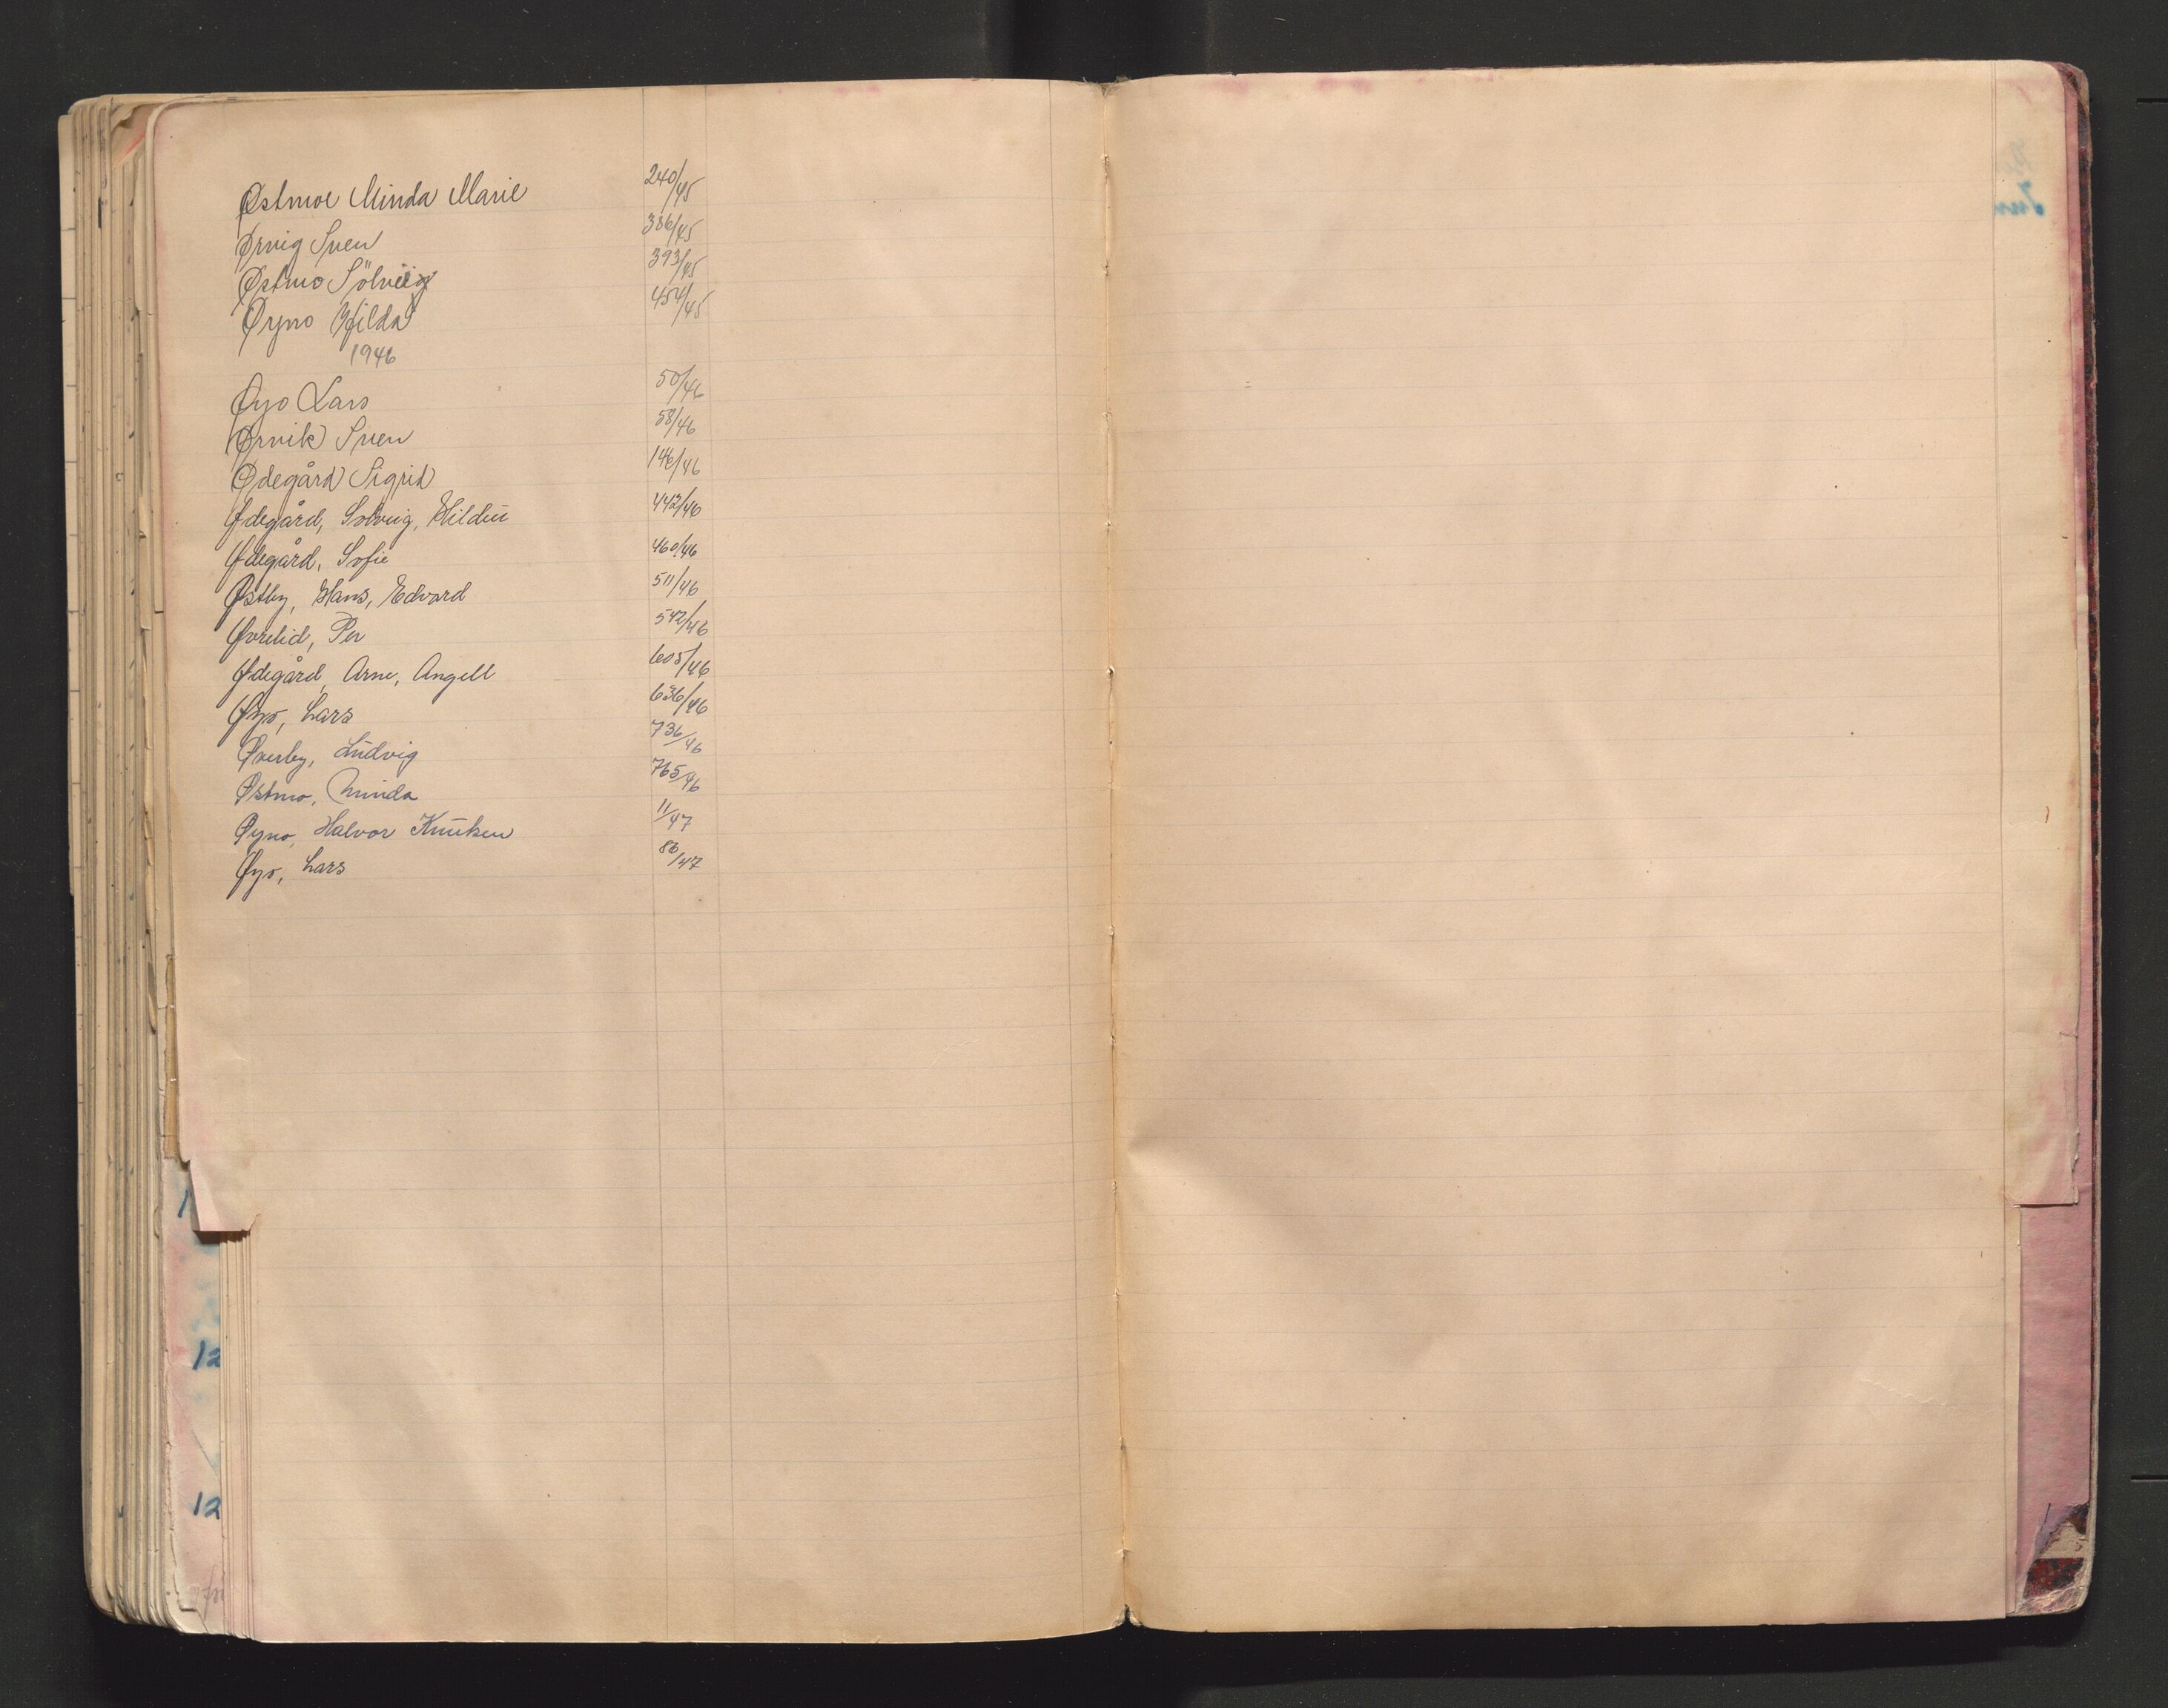 Østmoe Minda Marie 240/45
Ørvig Sven 386/45
Østmo Sölveig 393/45
Øyno Hilda 454/45
1946
Øyo Lars 50/46
Ørvik Sven 58/46
Ødegård Sigrid 146/46
Ødegård, Solveig, Hildur 442/46
Ødegård, Sofie 460/46
Østby, Hans, Edvard 511/46
Øvrelid, Per 542/46
Ødegård, Arne, Angell 605/46
Øyo, Lars 636/46
Øverby, Ludvig 736/46
Østmo, Minda 765/46
Øyno, Halvor Knutsen 11/47
Øyo, Lars 86/47
12
12